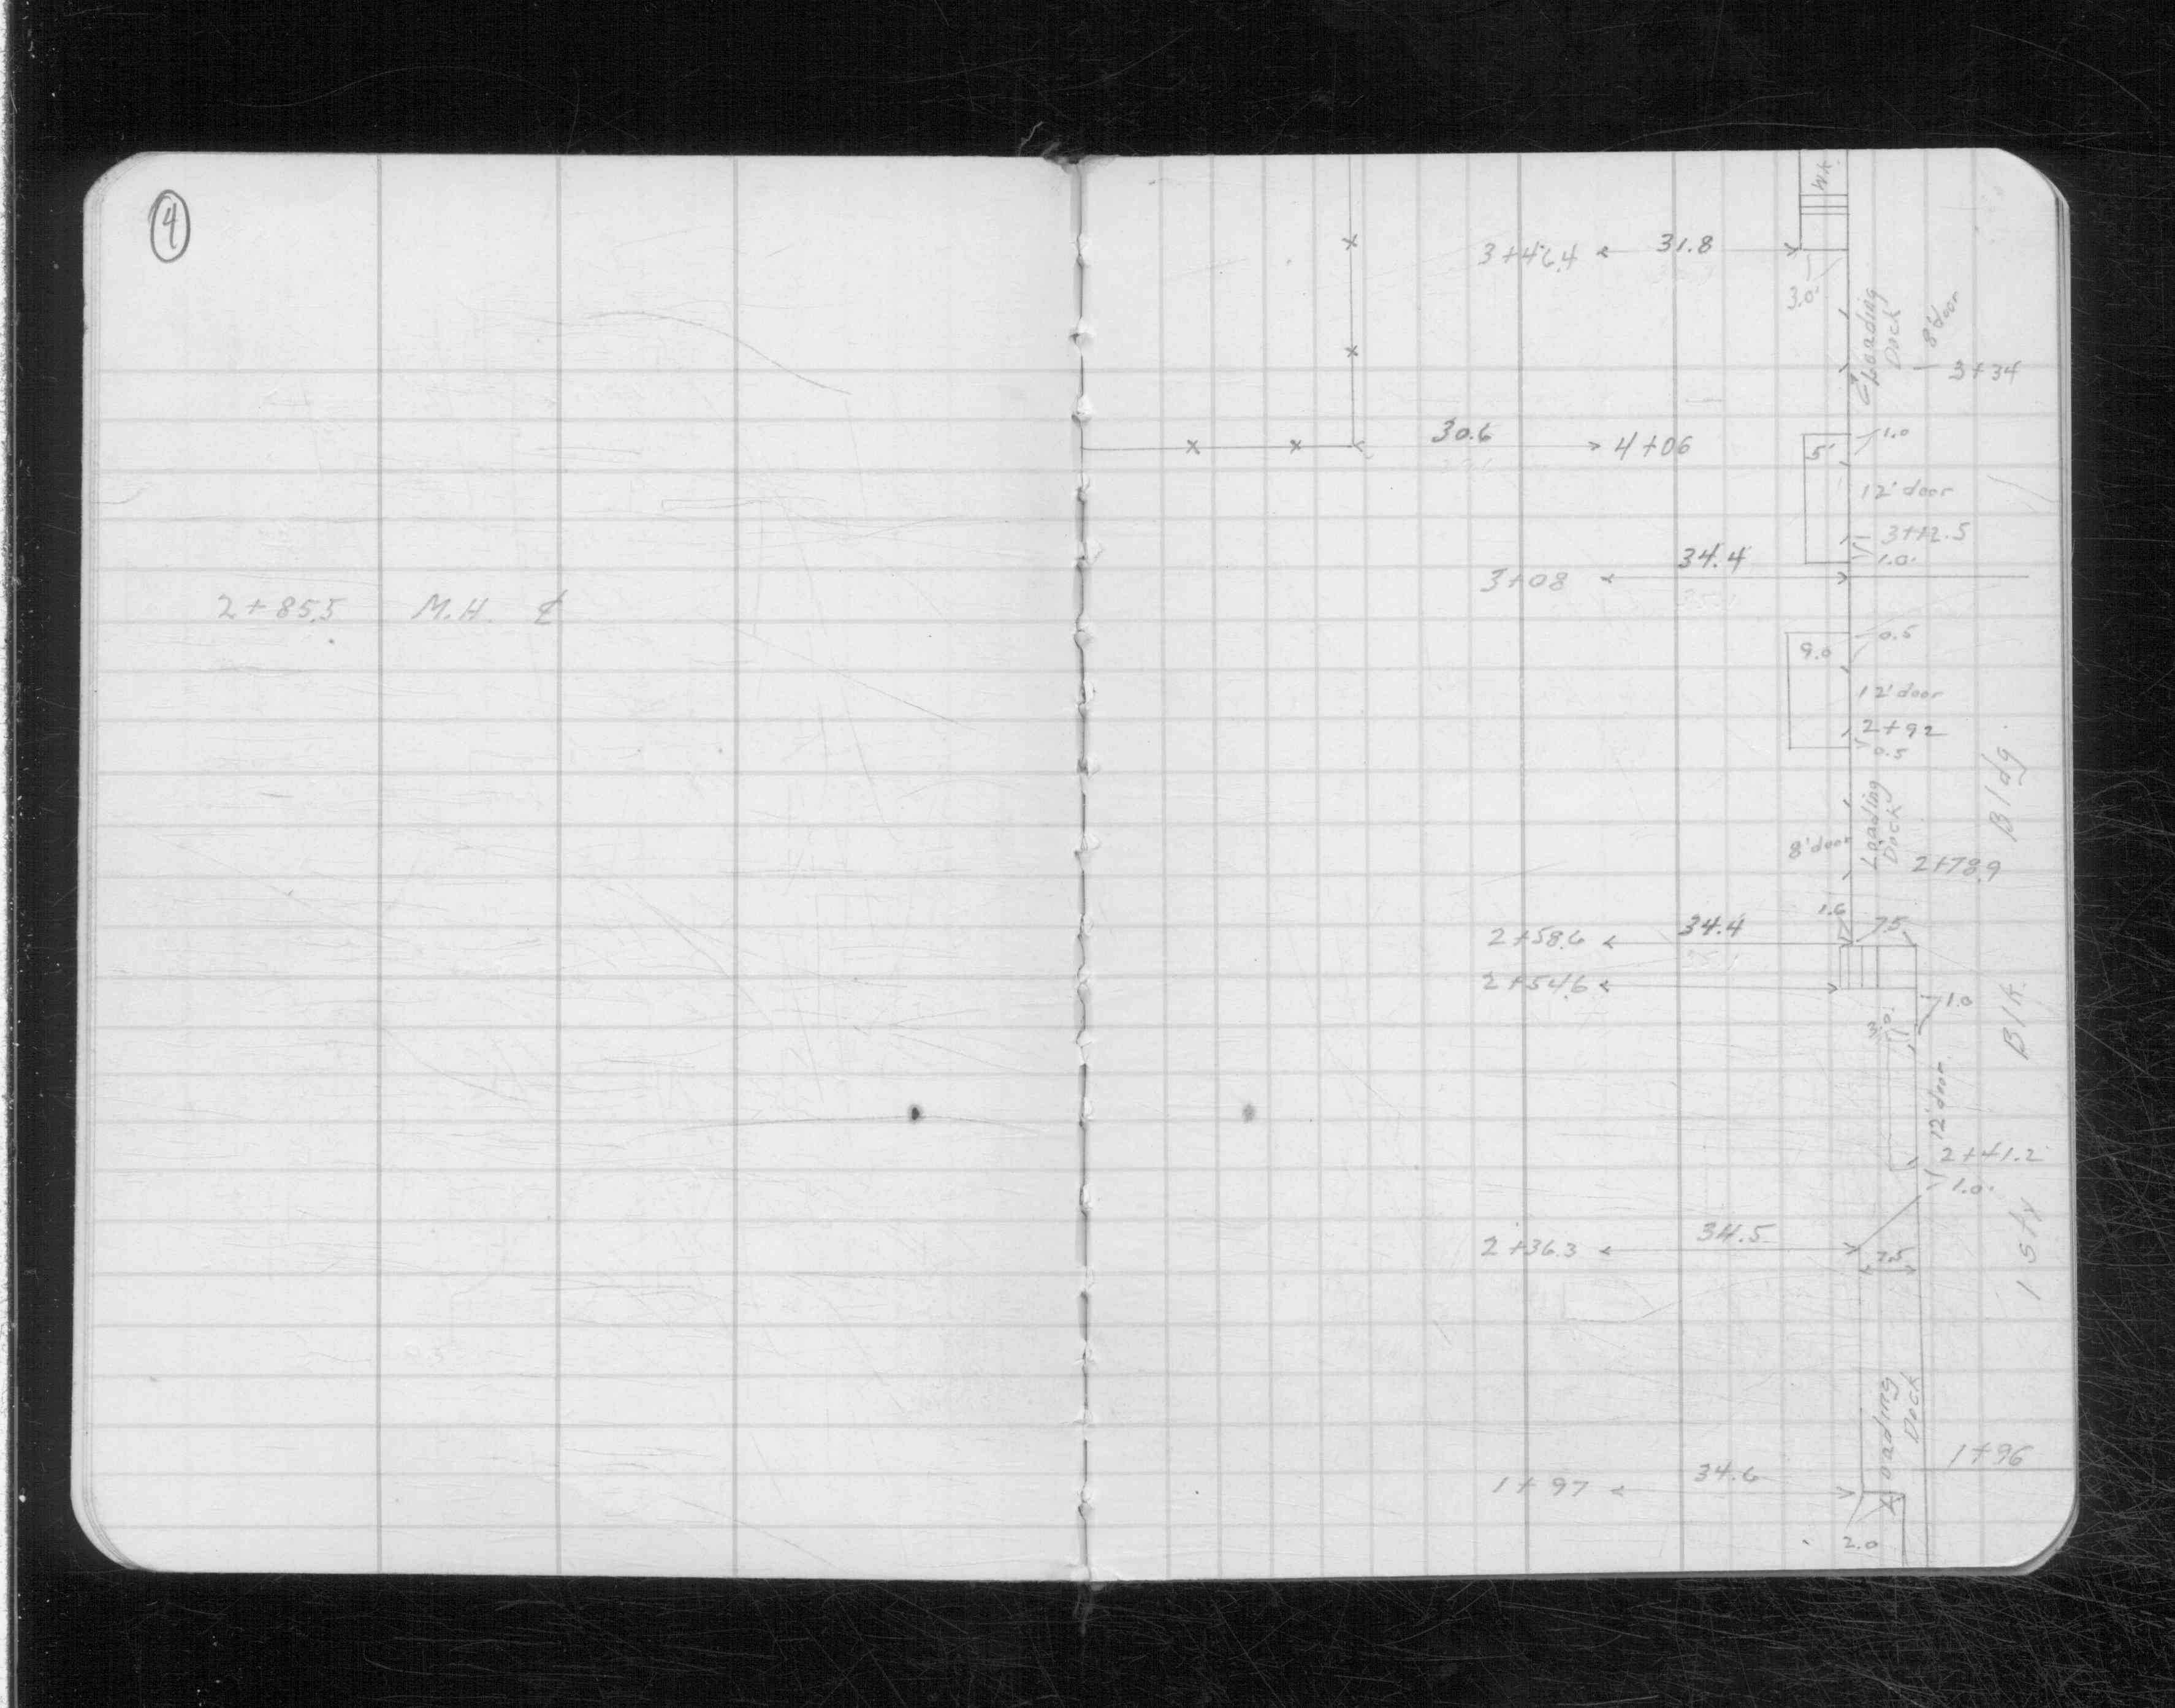 4
2+85.5 M.H. ₵
WK.
3+46.4 31.8
3.0'
Loading
Dock
8'door
3+34
30.6 4+06
1.0
5'
12'door
3+12.5
1.0'
3+08 34.4
0.5
9.0
12'door
2+92
0.5
Loading
Dock
8'door
2+78.9
1.6 7.5
2+58.6 34.4
2+54.6
1.0
3.0'
12'door
2+41.2
1.0'
2+36.3 34.5
7.5
1 sty Blk. Bldg.
Loading
Dock
1+96
1+97 34.6
2.0